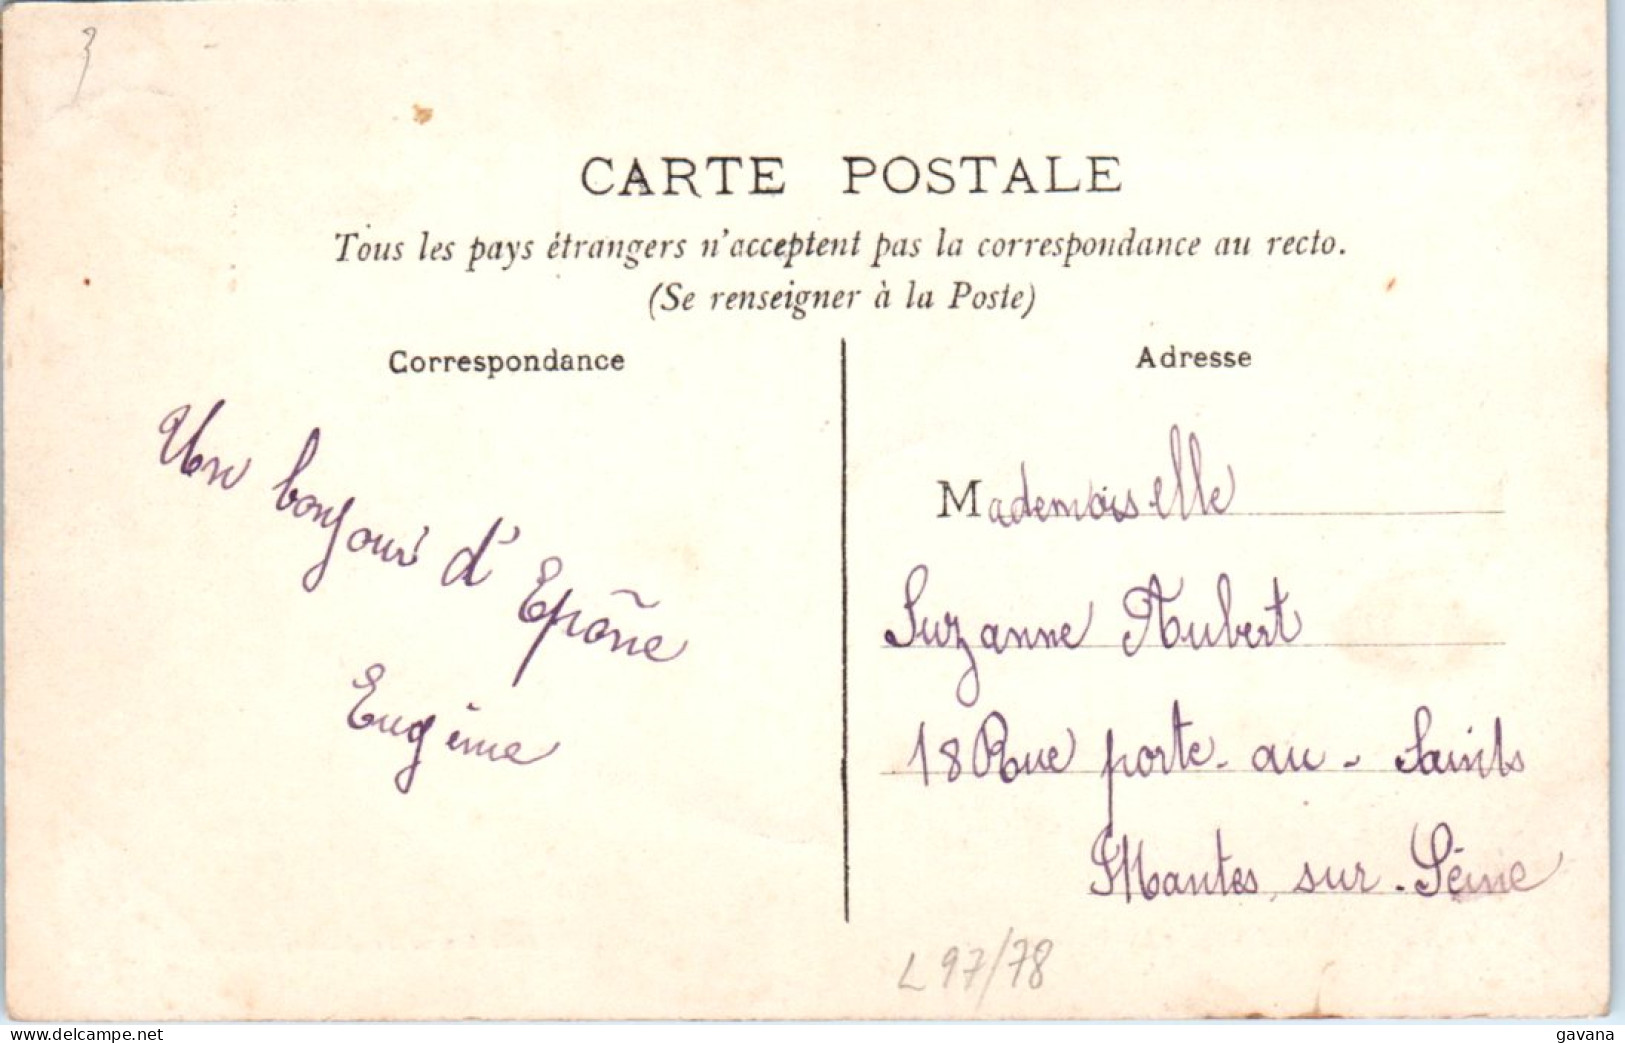 3
CARTE POSTALE
Tous les pays étrangers n'acceptent pas la correspondance au recto.
(Se renseigner à la Poste)
Correspondance
Un bonjour d'Epône
Eugène
Adresse
Mademoiselle
Suzanne Aubert
18 Rue porte-au-Saints
Mantes sur-Seine
L 97/78
www.delcampe.net
gavana